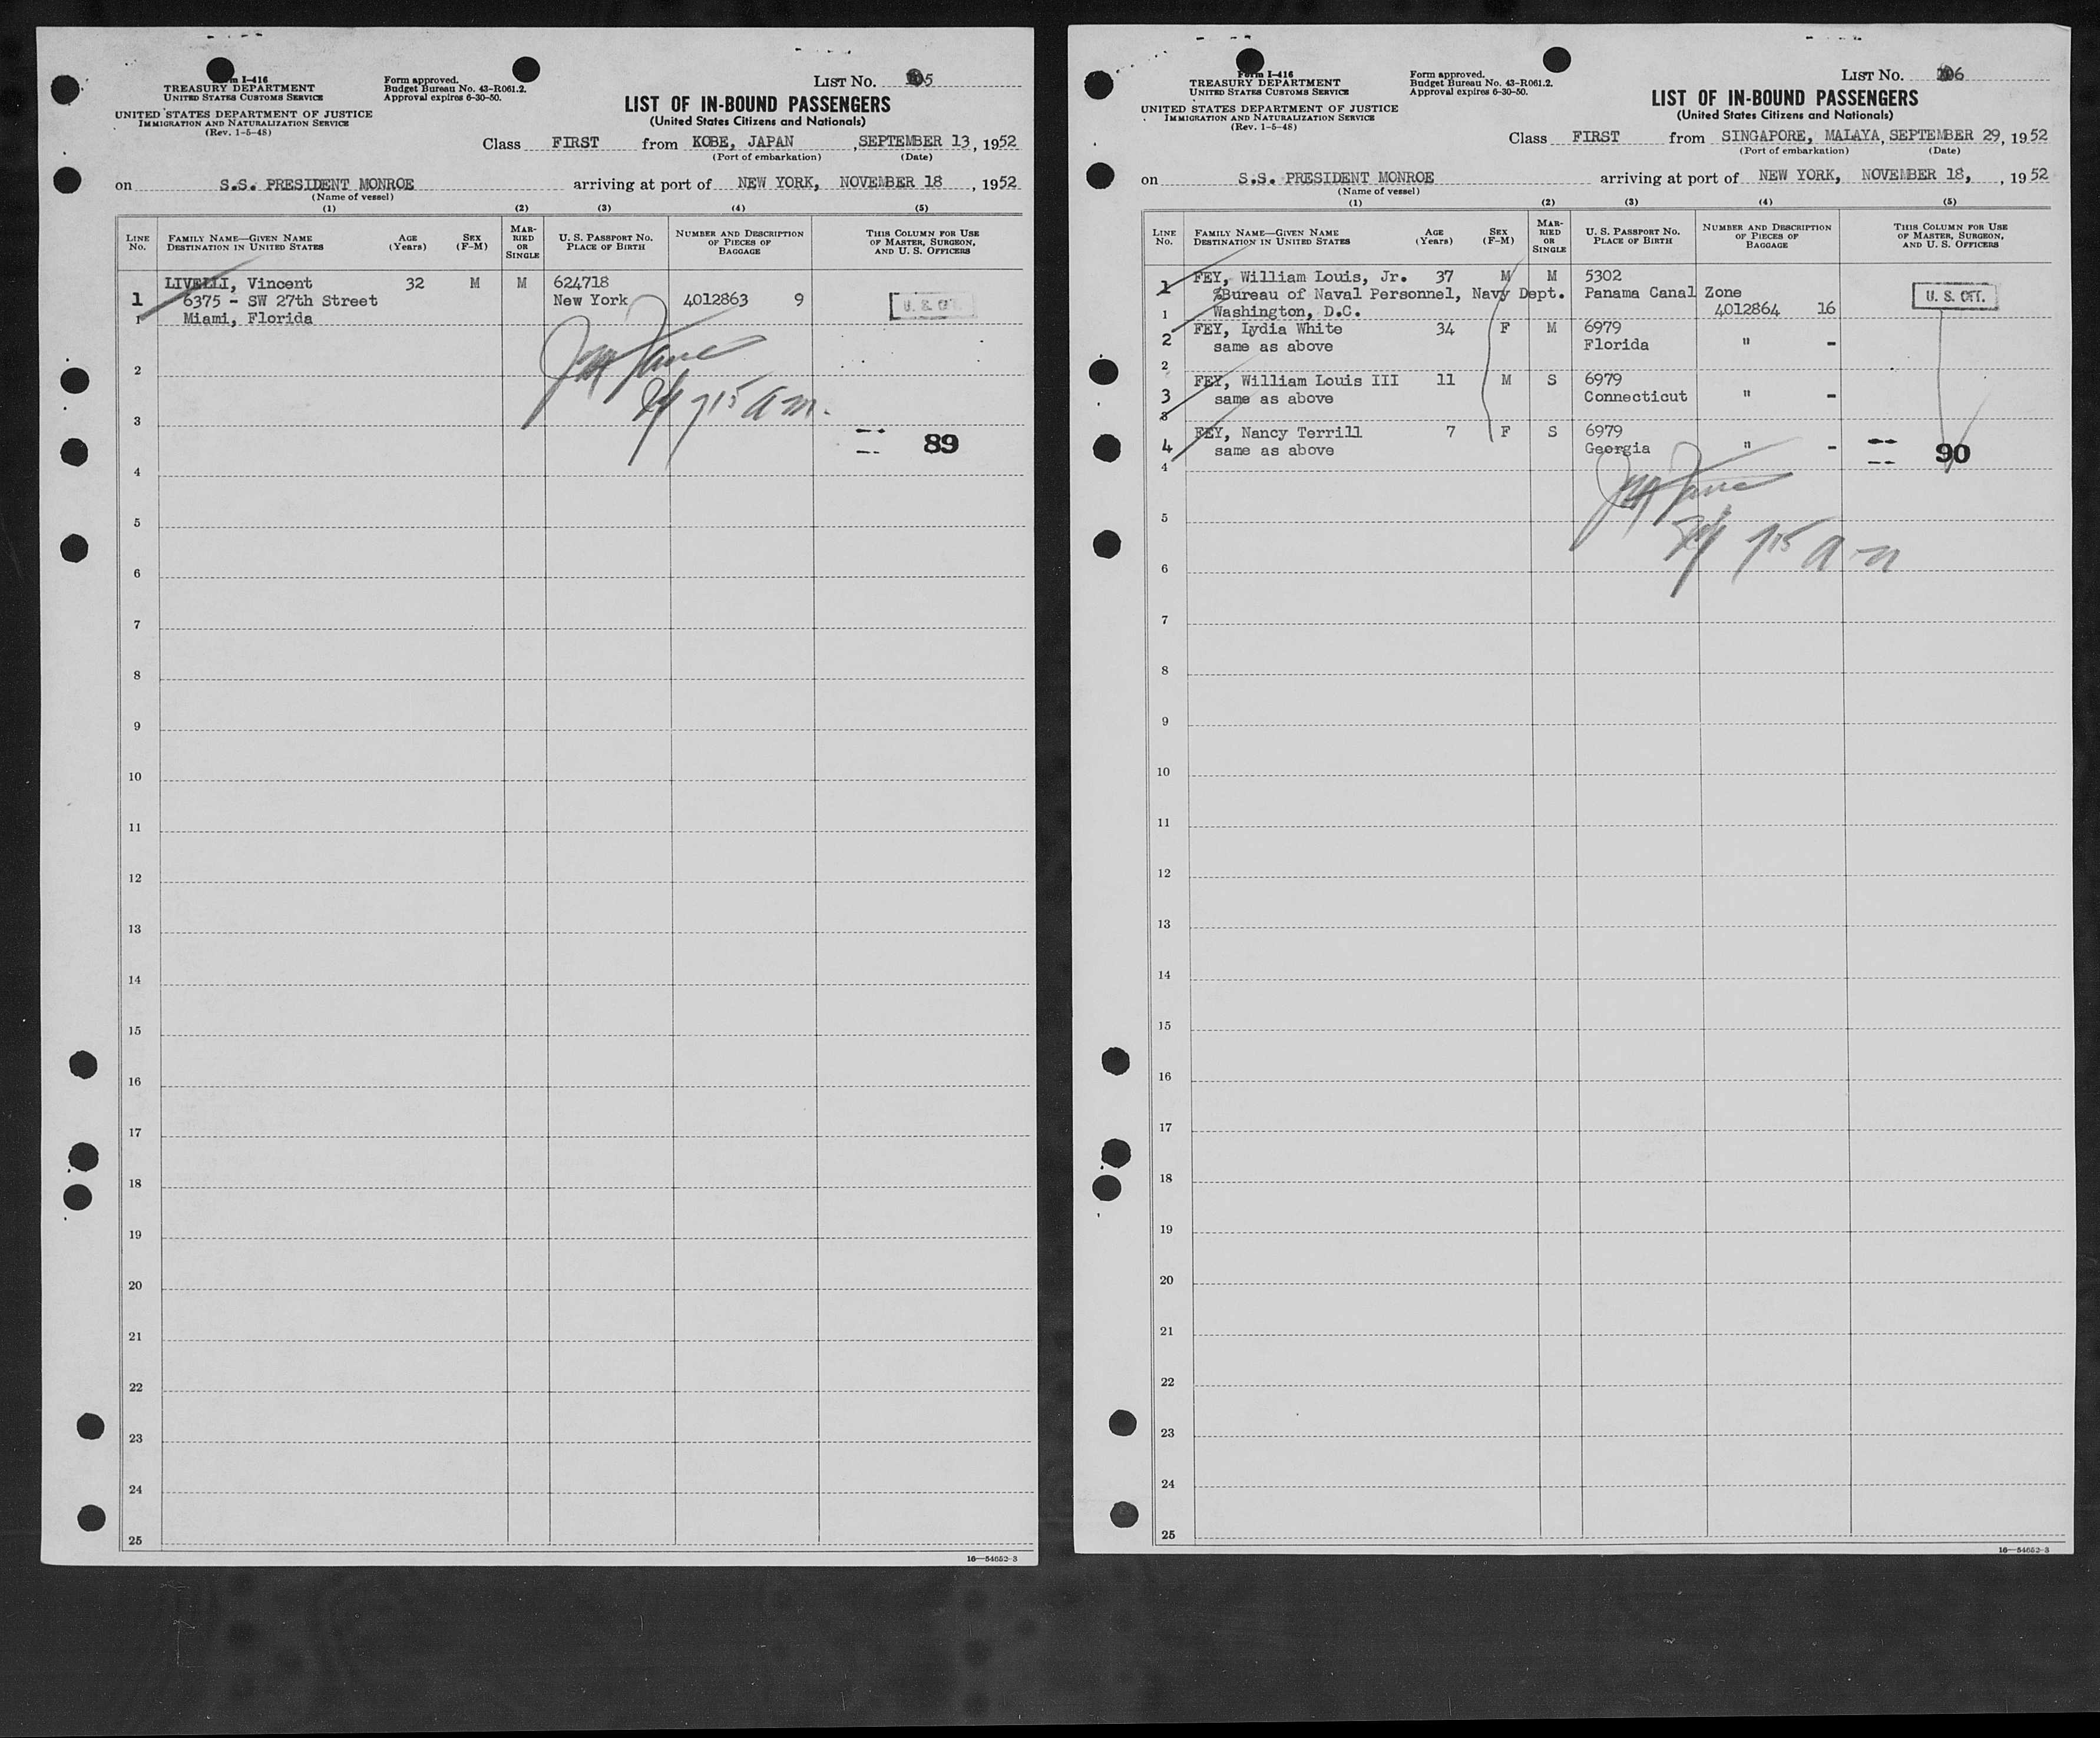 Form I-416
TREASURY DEPARTMENT
UNITED STATES CUSTOMS SERVICE
UNITED STATES DEPARTMENT OF JUSTICE
IMMIGRATION AND NATURALIZATION SERVICE
(Rev. 1-5-48)
Form approved.
Budget Bureau No. 43-R061.2.
Approval expires 6-30-50.
LIST No. 5
LIST OF IN-BOUND PASSENGERS
(United States Citizens and Nationals)
Class FIRST from KOBE, JAPAN, SEPTEMBER 13, 1952
(Port of embarkation) (Date)
on S.S. PRESIDENT MONROE arriving at port of NEW YORK, NOVEMBER 18, 1952
(Name of vessel)
(1) (2) (3) (4) (5)
LINE No. FAMILY NAME—GIVEN NAME DESTINATION IN UNITED STATES AGE (Years) SEX (F-M) MARRIED OR SINGLE U. S. PASSPORT No. PLACE OF BIRTH NUMBER AND DESCRIPTION OF PIECES OF BAGGAGE THIS COLUMN FOR USE OF MASTER, SURGEON, AND U. S. OFFICERS
LIVELLI, Vincent 32 M M 624718
1 6375 - SW 27th Street New York 4012863 9 U. S. CIT.
1 Miami, Florida
2
715 a m.
3
89
4
5
6
7
8
9
10
11
12
13
14
15
16
17
18
19
20
21
22
23
24
25
16—54652-3
Form I-416
TREASURY DEPARTMENT
UNITED STATES CUSTOMS SERVICE
UNITED STATES DEPARTMENT OF JUSTICE
IMMIGRATION AND NATURALIZATION SERVICE
(Rev. 1-5-48)
Form approved.
Budget Bureau No. 43-R061.2.
Approval expires 6-30-50.
LIST No. 6
LIST OF IN-BOUND PASSENGERS
(United States Citizens and Nationals)
Class FIRST from SINGAPORE, MALAYA, SEPTEMBER 29, 1952
(Port of embarkation) (Date)
on S.S. PRESIDENT MONROE arriving at port of NEW YORK, NOVEMBER 18, , 1952
(Name of vessel)
(1) (2) (3) (4) (5)
LINE No. FAMILY NAME—GIVEN NAME DESTINATION IN UNITED STATES AGE (Years) SEX (F-M) MARRIED OR SINGLE U. S. PASSPORT No. PLACE OF BIRTH NUMBER AND DESCRIPTION OF PIECES OF BAGGAGE THIS COLUMN FOR USE OF MASTER, SURGEON, AND U. S. OFFICERS
1 FEY, William Louis, Jr. 37 M M 5302
%Bureau of Naval Personnel, Navy Dept. Panama Canal Zone U. S. CIT.
1 Washington, D.C. 4012864 16
2 FEY, Lydia White 34 F M 6979
same as above Florida " -
2
FEY, William Louis III 11 M S 6979
3 same as above Connecticut " -
3
FEY, Nancy Terrill 7 F S 6979
4 same as above Georgia " - 90
4
5
7 15 a m
6
7
8
9
10
11
12
13
14
15
16
17
18
19
20
21
22
23
24
25
16—54652-3